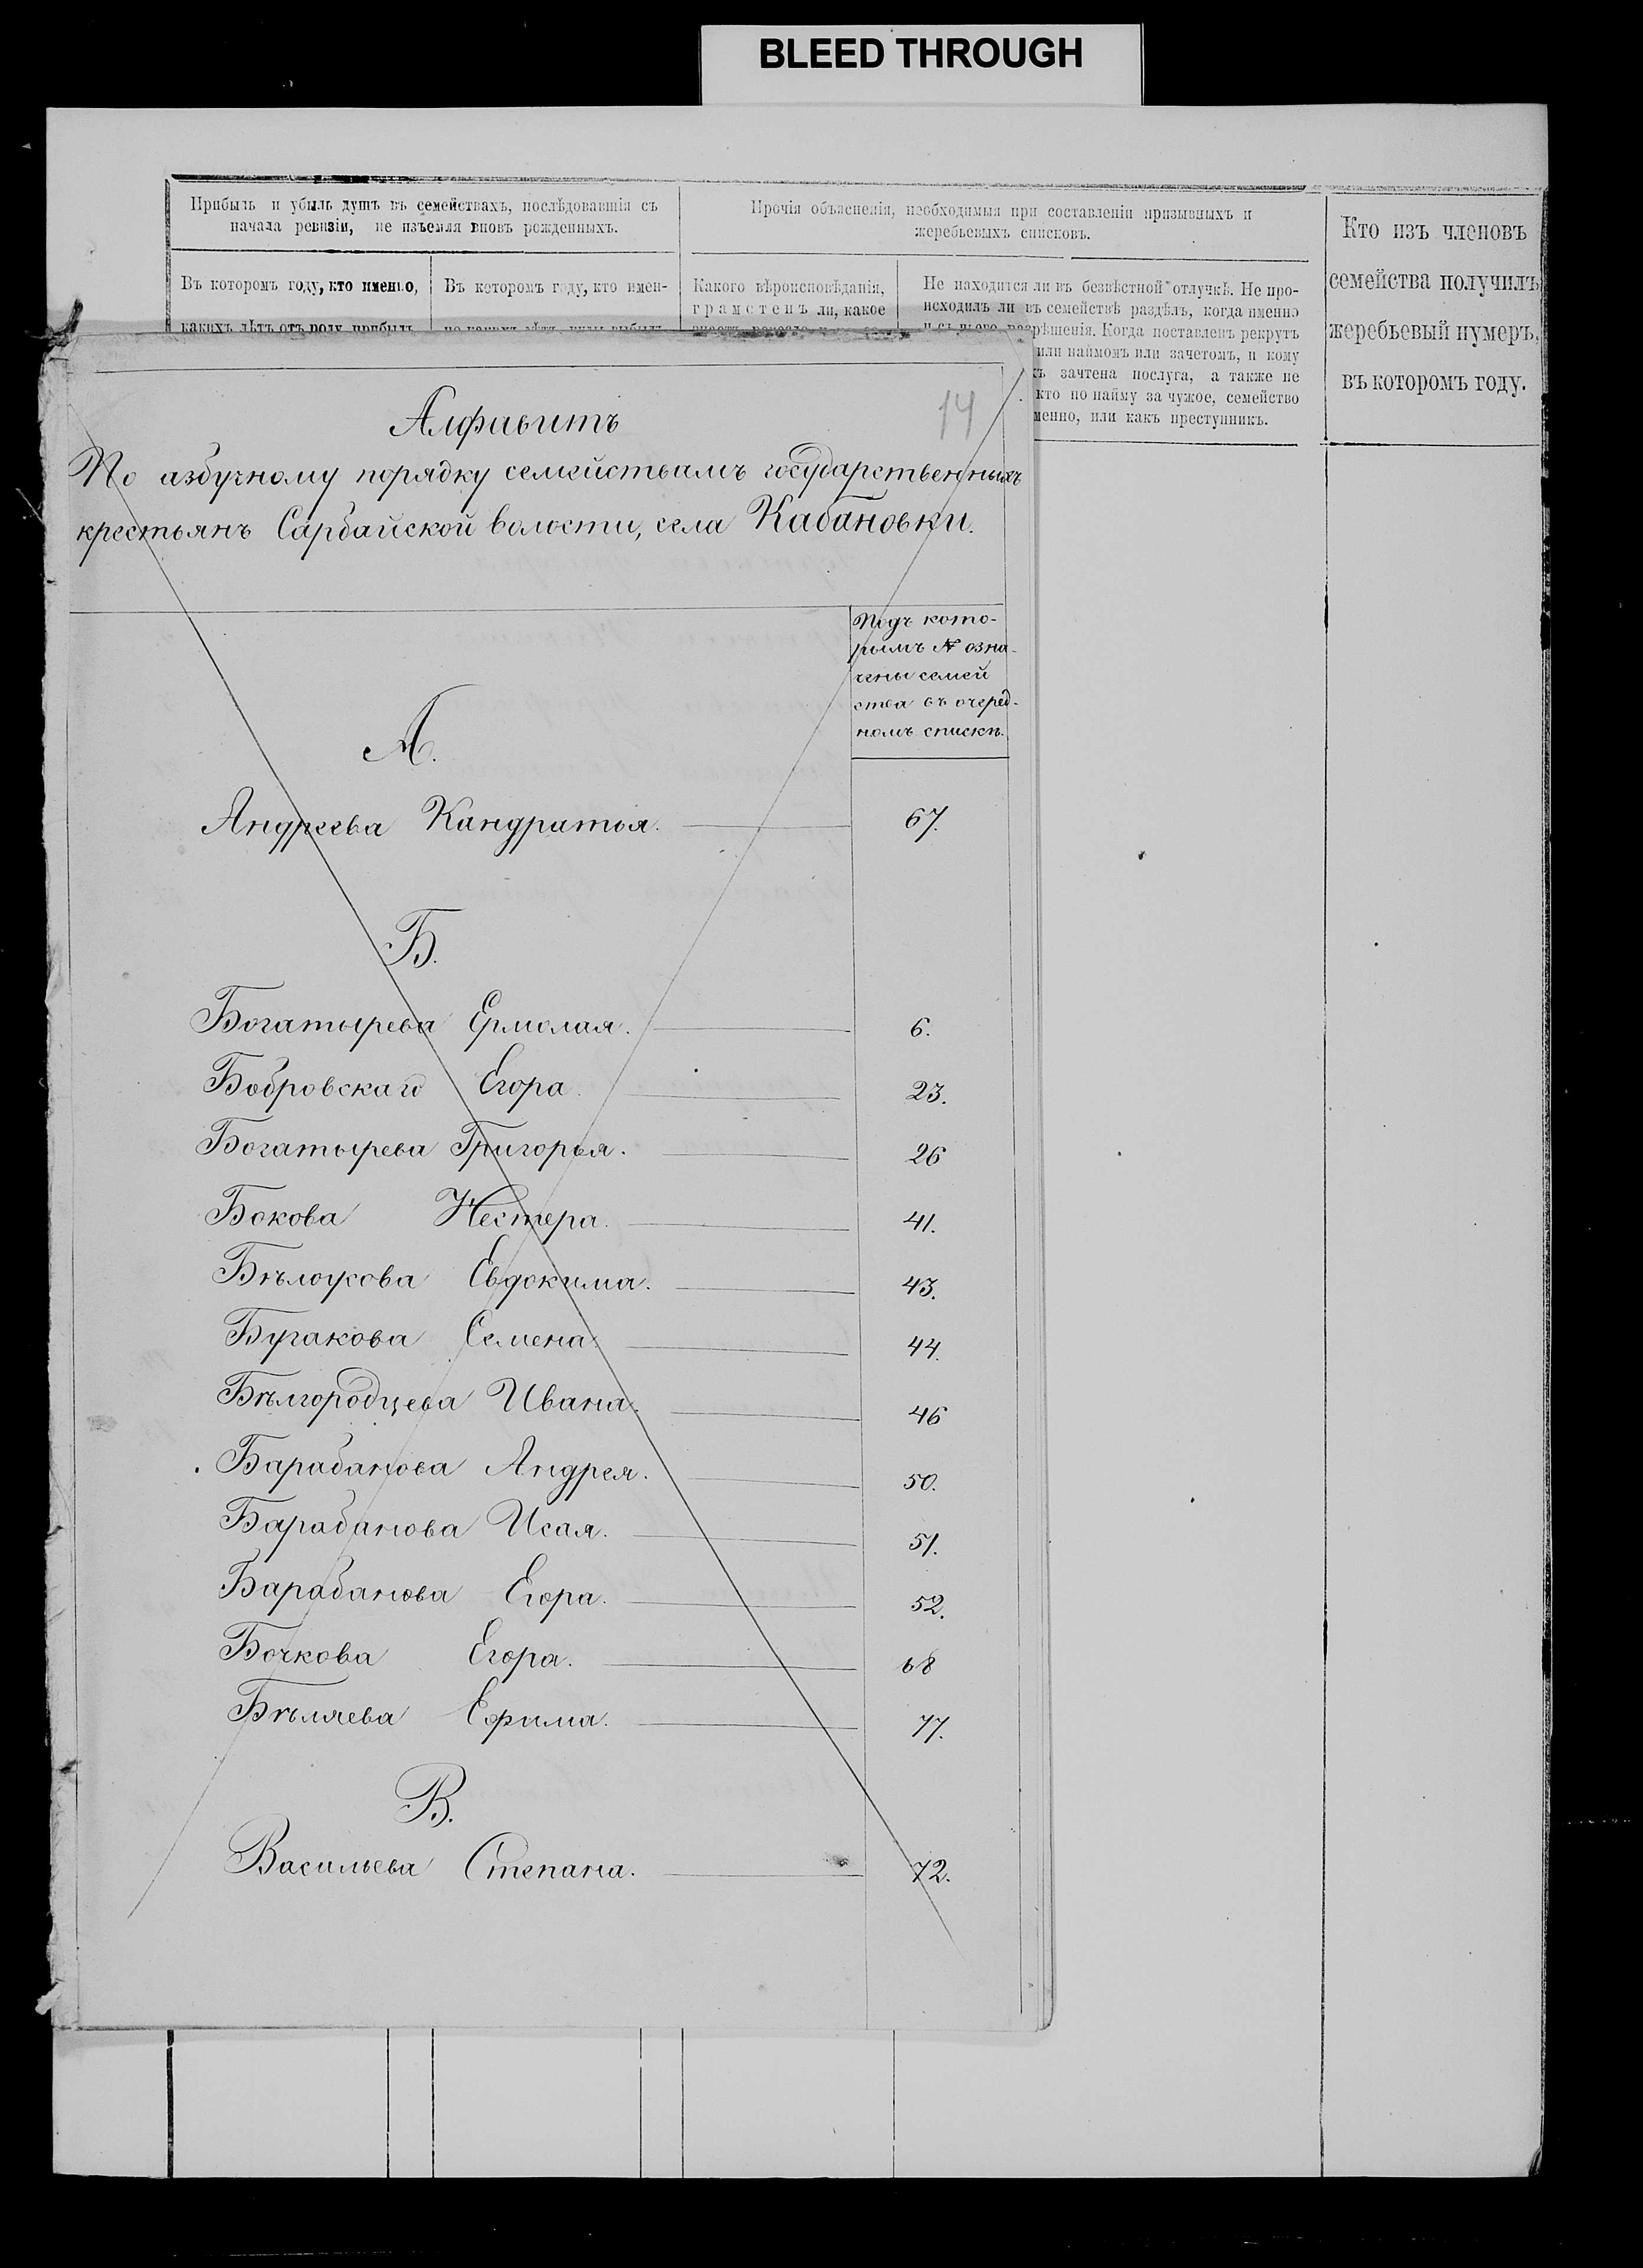 BLEED THROUGH
Прибыль и убыль душъ въ семействахъ, послѣдовавшія съ
начала ревизіи, не изъемля вновь рожденныхъ.
Прочія объясненія, необходимыя при составленіи призывныхъ и
жеребьевыхъ списковъ.
Кто изъ членовъ
семейства получилъ
жеребьевый нумеръ,
въ которомъ году.
Въ которомъ году, кто именно,
какихъ лѣтъ отъ роду прибылъ
Въ которомъ году, кто имен-
Какого вѣроисповѣданія,
грамотенъ ли, какое
Не находится ли въ безвѣстной отлучкѣ. Не про-
исходилъ ли въ семействѣ раздѣлъ, когда именно
разрѣшенія. Когда поставленъ рекрутъ
или наймомъ или зачетомъ, и кому
зачтена послуга, а также не
кто по найму за чужое, семейство
менно, или какъ преступникъ.
14
Алфавитъ
По азбучному порядку семействамъ государственныхъ
крестьянъ Сарбайской волости, села Кабановки.
Подъ кото-
рымъ № озна-
чены семей
ства въ очеред-
номъ спискѣ.
А.
Андреева Кандратья. 67.
Б.
Богатырева Ермолая. 6.
Бобровскаго Егора. 23.
Богатырева Григорья. 26
Бокова Нестера. 41.
Бѣлоусова Евдокима. 43.
Бугакова Семена. 44.
Бѣлгородцева Ивана. 46
Барабанова Андрея. 50.
Барабанова Исая. 51.
Барабанова Егора. 52.
Бочкова Егора. 68
Бѣляева Ефима. 77.
В.
Васильева Степана. 72.